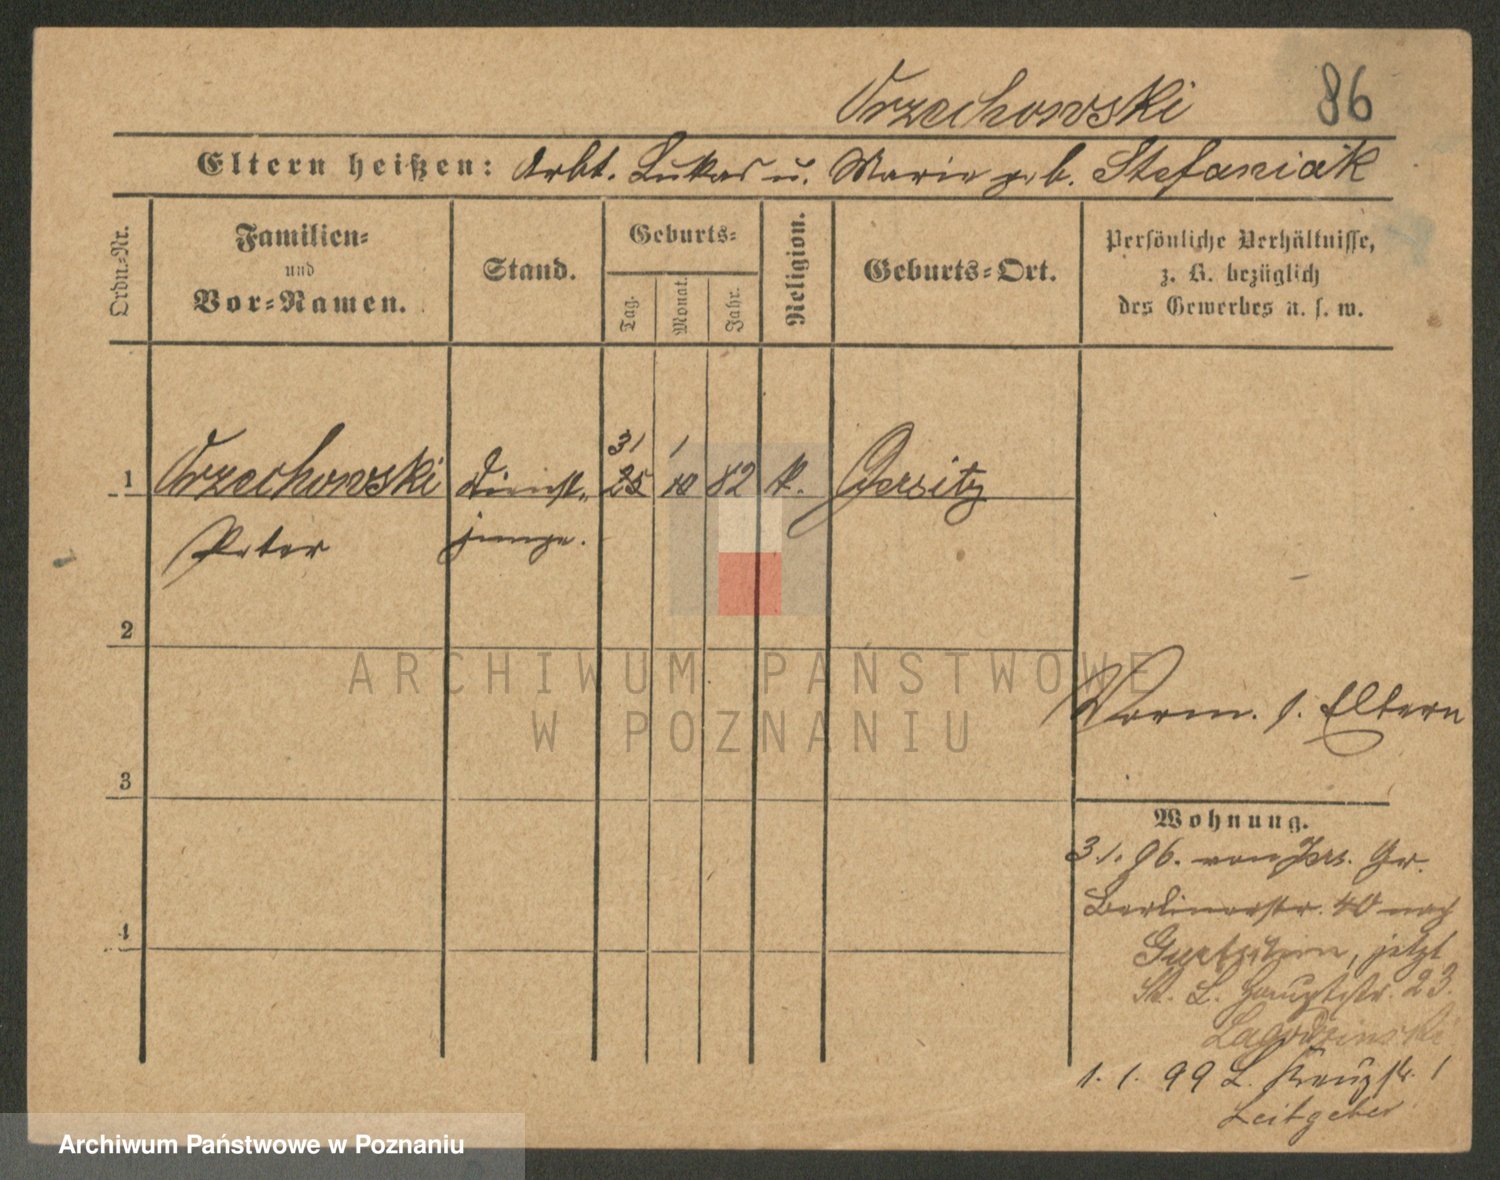 Orzechowski 86
Eltern heißen: Arbt. Lukas u. Marie geb. Stefaniak
Ordn.-Nr.
Familien-
und
Vor-Namen.
Stand.
Geburts-
Tag.
Monat.
Jahr.
Religion.
Geburts-Ort.
Persönliche Verhältnisse,
z. B. bezüglich
des Gewerbes u. s. w.
31 1
1 Orzechowski Dienst- 25 10 82 k. Gersitz
Peter junge.
2
ARCHIWUM PAŃSTWOWE
W POZNANIU
Vorm. s. Eltern
3
Wohnung.
3.1.96. von Jers. Gr.
Berlinerstr. 40 nach
jetzt
St. L. Hauptstr. 23.
Lagodzinski
4
1.1.99 L. Kreuzstr. 1
Leitgeber
Archiwum Państwowe w Poznaniu